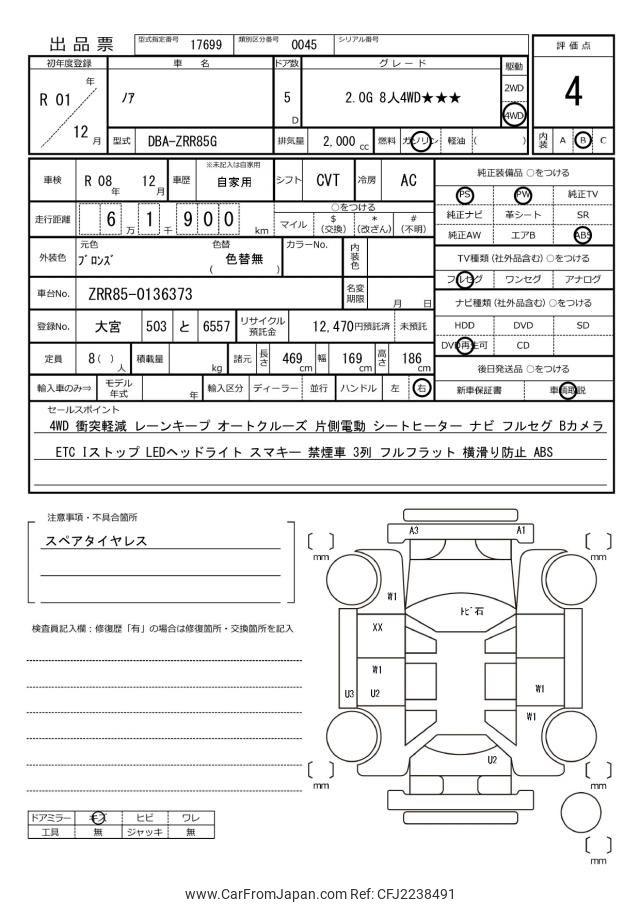 出品票 型式指定番号 17699 類別区分番号 0045 シリアル番号
評価点
4
初年度登録 車名 ドア数 グレード 駆動
R 01 年 12 月 ノア 5 D 2.0G 8人4WD★★★ 2WD 4WD
型式 DBA-ZRR85G 排気量 2,000 cc 燃料 ガソリン 軽油 ( ) 内装 A B C
車検 R 08 年 12 月 車歴 ※未記入は自家用 自家用 シフト CVT 冷房 AC
走行距離 6 万 1 千 9 0 0 km ○をつける マイル $ (交換) * (改ざん) # (不明)
外装色 元色 ブロンズ 色替 ( 色替無 ) カラーNo. 内装色
車台No. ZRR85-0136373 名変期限 月 日
登録No. 大宮 503 と 6557 リサイクル預託金 12,470円預託済 未預託
定員 8( ) 人 積載量 kg 諸元 長さ 469 cm 幅 169 cm 高さ 186 cm
輸入車のみ⇒ モデル年式 年 輸入区分 ディーラー 並行 ハンドル 左 右
純正装備品 ○をつける
PS PW 純正TV
純正ナビ 革シート SR
純正AW エアB ABS
TV種類 (社外品含む) ○をつける
フルセグ ワンセグ アナログ
ナビ種類 (社外品含む) ○をつける
HDD DVD SD
DVD再生可 CD
後日発送品 ○をつける
新車保証書 車輌取説
セールスポイント
4WD 衝突軽減 レーンキープ オートクルーズ 片側電動 シートヒーター ナビ フルセグ Bカメラ
ETC Iストップ LEDヘッドライト スマキー 禁煙車 3列 フルフラット 横滑り防止 ABS
注意事項・不具合箇所
スペアタイヤレス
検査員記入欄:修復歴「有」の場合は修復箇所・交換箇所を記入
A3 A1
mm mm
W1
トビ石
XX
W1
U3 U2 W1
W1
U2
mm mm
mm
ドアミラー キズ ヒビ ワレ
工具 無 ジャッキ 無
www.CarFromJapan.com Ref: CFJ2238491